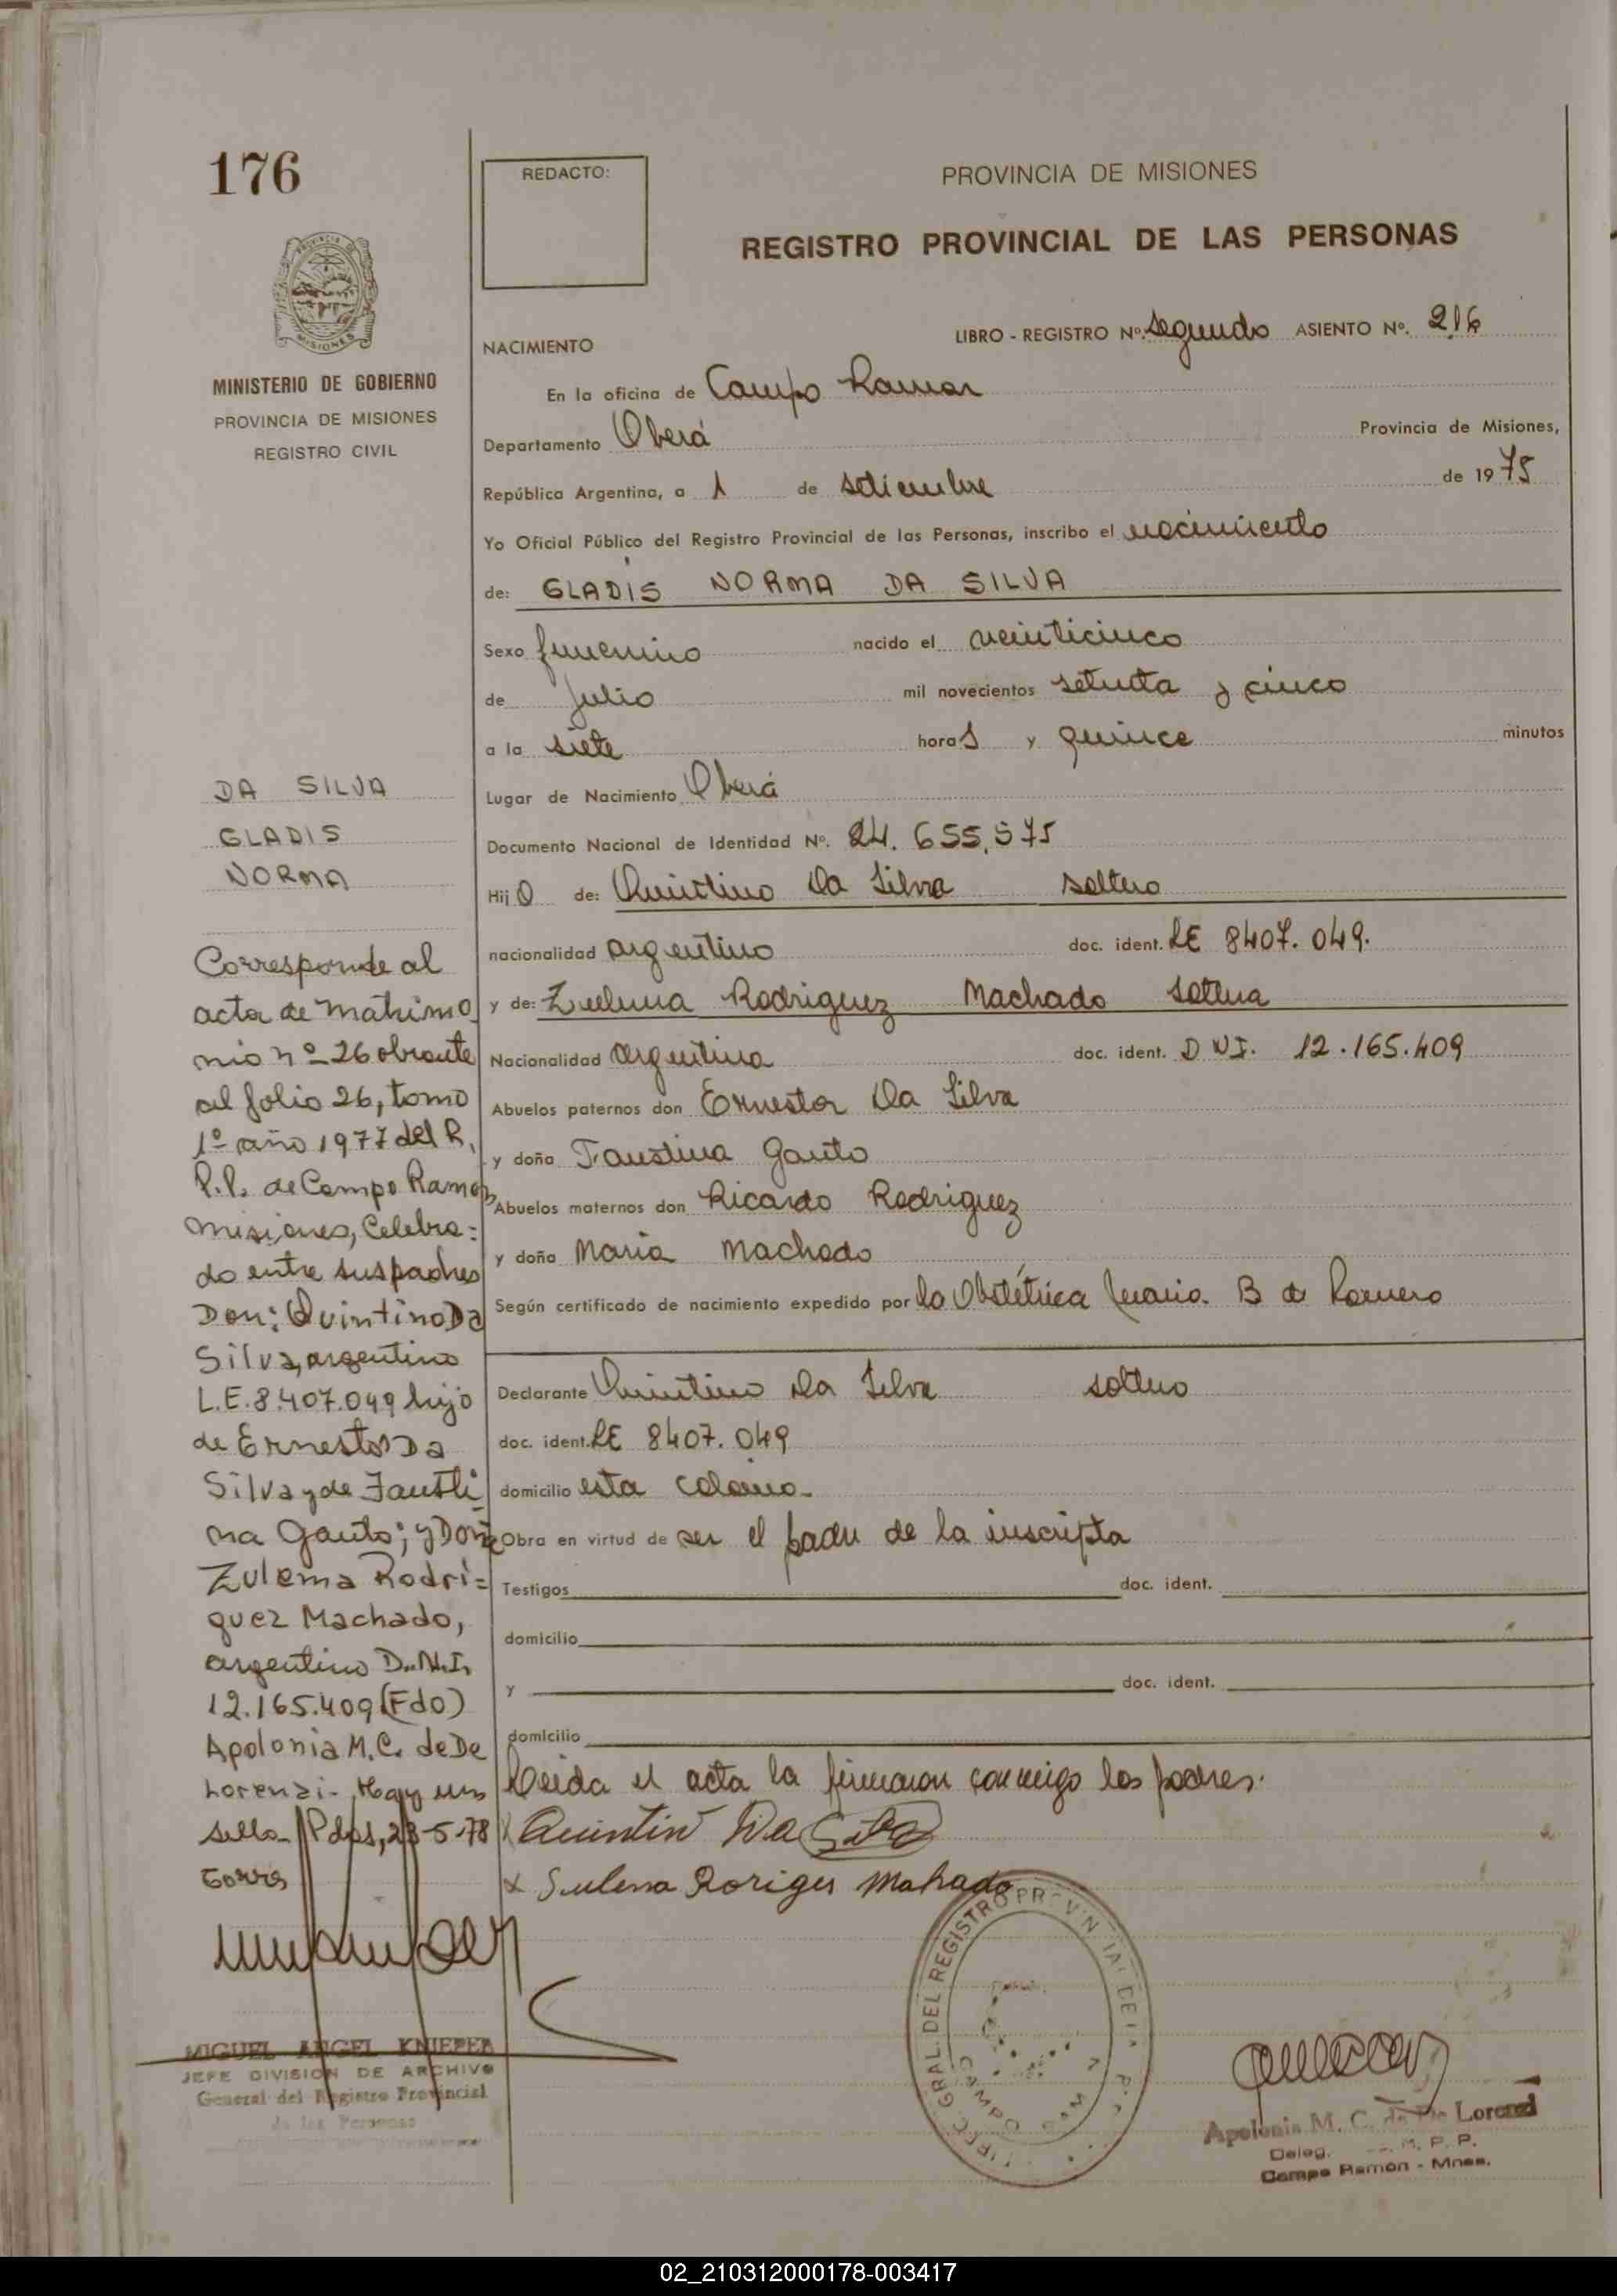 176
REDACTO:
PROVINCIA DE MISIONES
REGISTRO PROVINCIAL DE LAS PERSONAS
MISIONES
MINISTERIO DE GOBIERNO
PROVINCIA DE MISIONES
REGISTRO CIVIL
LIBRO - REGISTRO Nº. segundo ASIENTO Nº. 216
NACIMIENTO
En la oficina de Campo Ramon
Departamento Oberá Provincia de Misiones,
República Argentina, a 1 de setiembre de 1975
Yo Oficial Público del Registro Provincial de las Personas, inscribo el nacimiento
de: GLADIS NORMA DA SILVA
Sexo femenino nacido el veinticinco
de Julio mil novecientos setenta y cinco
a la siete horas y quince minutos
Lugar de Nacimiento Oberá
Documento Nacional de Identidad Nº. 24.655.575
Hija de: Quintino Da Silva soltero
nacionalidad argentino doc. ident. LE 8407.049.
y de: Zulema Rodriguez Machado soltera
Nacionalidad argentina doc. ident. D N I. 12.165.409
Abuelos paternos don Ernestor Da Silva
y doña Faustina Gauto
Abuelos maternos don Ricardo Rodriguez
y doña Maria Machado
Según certificado de nacimiento expedido por la Obstétrica Maria B de Romero
Declarante Quintino Da Silva soltero
doc. ident. LE 8407.049
domicilio esta colonia.
Obra en virtud de ser el padre de la inscripta
Testigos doc. ident.
domicilio
y doc. ident.
domicilio
Leida el acta la firmaron conmigo los padres.
x Quintin Da Silva
x Sulena Roriges Mahado
DA SILVA
GLADIS
NORMA
Corresponde al
acta de matrimo
nio nº 26 obrante
al folio 26, tomo
1º año 1977 del R.
P.P. de Campo Ramon
Misiones, Celebra=
do entre sus padres
Don: Quintino Da
Silva, argentino
L.E. 8.407.049 hijo
de Ernesto Da
Silva y de Fausti
na Gauto; y Doña
Zulema Rodri=
guez Machado,
argentino D.N.I.
12.165.409 (Fdo)
Apolonia M.C. de De
Lorenzi- Hay un
sello- Pdas, 23-5-78
MIGUEL ANGEL KNIEPER
JEFE DIVISION DE ARCHIVO
General del Registro Provincial
de las Personas
GRAL. DEL REGISTRO PROVINCIAL DE LA
CAMPO
Apolonia M. C. de De Lorenzi
Deleg. P. P.
Campo Ramon - Mnes.
02_210312000178-003417